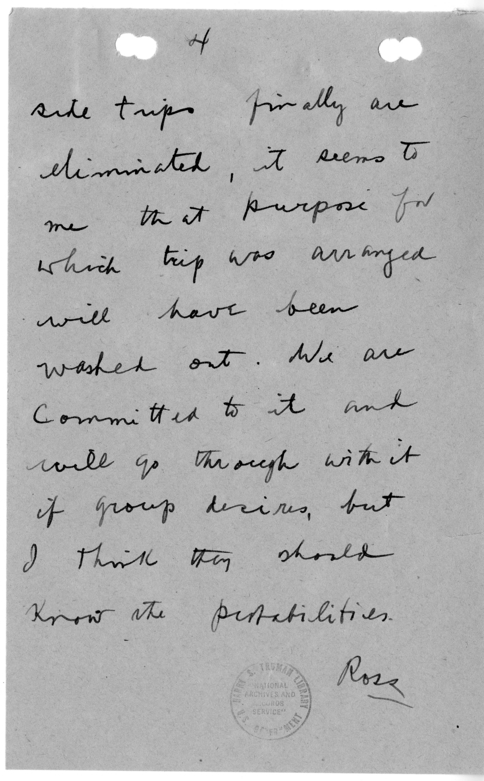 4
side trips finally are
eliminated, it seems to
me that purpose for
which trip was arranged
will have been
washed out. We are
committed to it and
will go through with it
if group desires, but
I think they should
know the probabilities.
Ross
HARRY S. TRUMAN LIBRARY
NATIONAL
ARCHIVES AND
RECORDS
SERVICE
U.S. GOVERNMENT